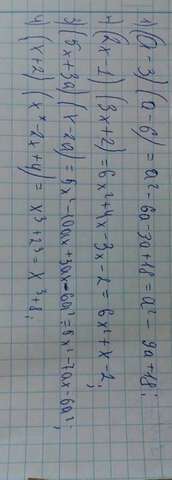 1) (a-3)(a-6) = a²-6a-3a+18 = a²-9a+18;
2) (2x-1)(3x+2) = 6x²+4x-3x-2 = 6x²+x-2;
3) (5x+3a)(x-2a) = 5x²-10ax+3ax-6a² = 5x²-7ax-6a²;
4) (x+2)(x²-2x+4) = x³+2³ = x³+8;